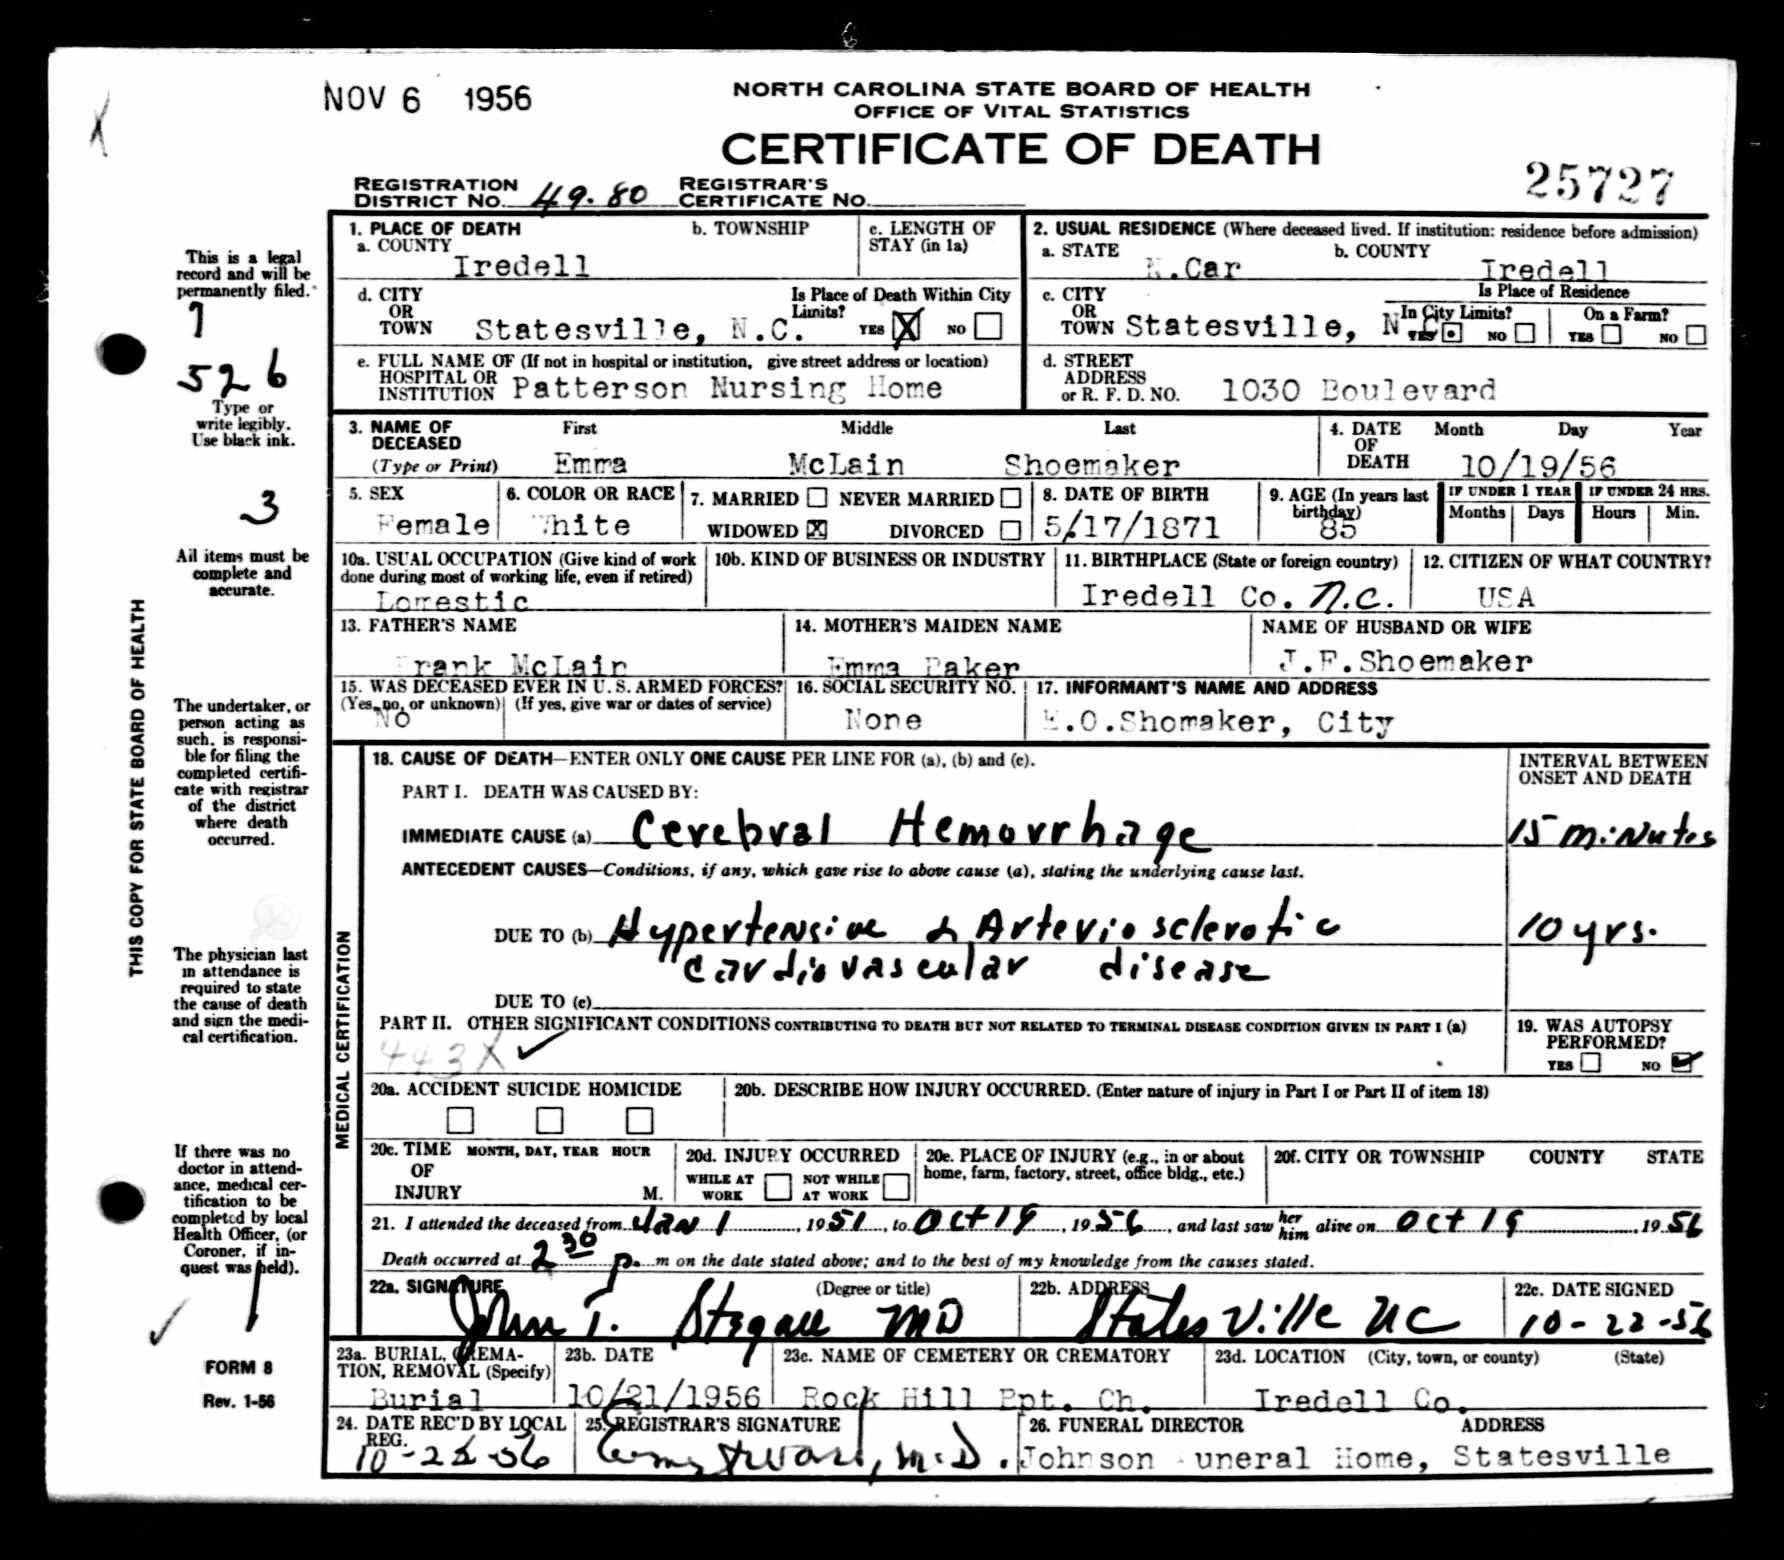 NOV 6 1956
NORTH CAROLINA STATE BOARD OF HEALTH
OFFICE OF VITAL STATISTICS
CERTIFICATE OF DEATH
25727
REGISTRATION DISTRICT NO. 49.80 REGISTRAR'S CERTIFICATE NO.
1. PLACE OF DEATH
a. COUNTY Iredell
b. TOWNSHIP
c. LENGTH OF STAY (in 1a)
2. USUAL RESIDENCE (Where deceased lived. If institution: residence before admission)
a. STATE N.Car b. COUNTY Iredell
d. CITY OR TOWN Statesville, N.C.
Is Place of Death Within City Limits? YES X NO
c. CITY OR TOWN Statesville, N C
Is Place of Residence
In City Limits? YES NO
On a Farm? YES NO
e. FULL NAME OF (If not in hospital or institution, give street address or location)
HOSPITAL OR INSTITUTION Patterson Nursing Home
d. STREET ADDRESS or R. F. D. NO. 1030 Boulevard
3. NAME OF DECEASED (Type or Print)
First Middle Last
Emma McLain Shoemaker
4. DATE OF DEATH Month Day Year
10/19/56
5. SEX
Female
6. COLOR OR RACE
White
7. MARRIED NEVER MARRIED
WIDOWED X DIVORCED
8. DATE OF BIRTH
5/17/1871
9. AGE (In years last birthday)
85
IF UNDER 1 YEAR
Months Days
IF UNDER 24 HRS.
Hours Min.
10a. USUAL OCCUPATION (Give kind of work done during most of working life, even if retired)
Domestic
10b. KIND OF BUSINESS OR INDUSTRY
11. BIRTHPLACE (State or foreign country)
Iredell Co. N.C.
12. CITIZEN OF WHAT COUNTRY?
USA
13. FATHER'S NAME
Frank McLain
14. MOTHER'S MAIDEN NAME
Emma Baker
NAME OF HUSBAND OR WIFE
J.F.Shoemaker
15. WAS DECEASED EVER IN U. S. ARMED FORCES?
(Yes, no, or unknown) (If yes, give war or dates of service)
No
16. SOCIAL SECURITY NO.
None
17. INFORMANT'S NAME AND ADDRESS
E.O.Shomaker, City
MEDICAL CERTIFICATION
18. CAUSE OF DEATH—ENTER ONLY ONE CAUSE PER LINE FOR (a), (b) and (c).
INTERVAL BETWEEN ONSET AND DEATH
PART I. DEATH WAS CAUSED BY:
IMMEDIATE CAUSE (a) Cerebral Hemorrhage 15 minutes
ANTECEDENT CAUSES—Conditions, if any, which gave rise to above cause (a), stating the underlying cause last.
DUE TO (b) Hypertensive & Arteriosclerotic 10 yrs.
cardiovascular disease
DUE TO (c)
PART II. OTHER SIGNIFICANT CONDITIONS CONTRIBUTING TO DEATH BUT NOT RELATED TO TERMINAL DISEASE CONDITION GIVEN IN PART I (a)
443X
19. WAS AUTOPSY PERFORMED?
YES NO
20a. ACCIDENT SUICIDE HOMICIDE
20b. DESCRIBE HOW INJURY OCCURRED. (Enter nature of injury in Part I or Part II of item 18)
20c. TIME OF INJURY MONTH, DAY, YEAR HOUR M.
20d. INJURY OCCURRED
WHILE AT WORK NOT WHILE AT WORK
20e. PLACE OF INJURY (e.g., in or about home, farm, factory, street, office bldg., etc.)
20f. CITY OR TOWNSHIP COUNTY STATE
21. I attended the deceased from Jan 1, 1951, to Oct 19, 1956, and last saw her him alive on Oct 19, 1956
Death occurred at 2 30 p. m on the date stated above; and to the best of my knowledge from the causes stated.
22a. SIGNATURE (Degree or title)
John T. Stegall MD
22b. ADDRESS
Statesville NC
22c. DATE SIGNED
10-22-56
23a. BURIAL, CREMATION, REMOVAL (Specify)
Burial
23b. DATE
10/21/1956
23c. NAME OF CEMETERY OR CREMATORY
Rock Hill Bpt. Ch.
23d. LOCATION (City, town, or county) (State)
Iredell Co.
24. DATE REC'D BY LOCAL REG.
25. REGISTRAR'S SIGNATURE
M.D.
26. FUNERAL DIRECTOR ADDRESS
Johnson Funeral Home, Statesville
X
This is a legal
record and will be
permanently filed.
526
Type or
write legibly.
Use black ink.
3
All items must be
complete and
accurate.
THIS COPY FOR STATE BOARD OF HEALTH
The undertaker, or
person acting as
such, is responsi-
ble for filing the
completed certifi-
cate with registrar
of the district
where death
occurred.
The physician last
in attendance is
required to state
the cause of death
and sign the medi-
cal certification.
If there was no
doctor in attend-
ance, medical cer-
tification to be
completed by local
Health Officer, (or
Coroner, if in-
quest was held).
FORM 8
Rev. 1-56